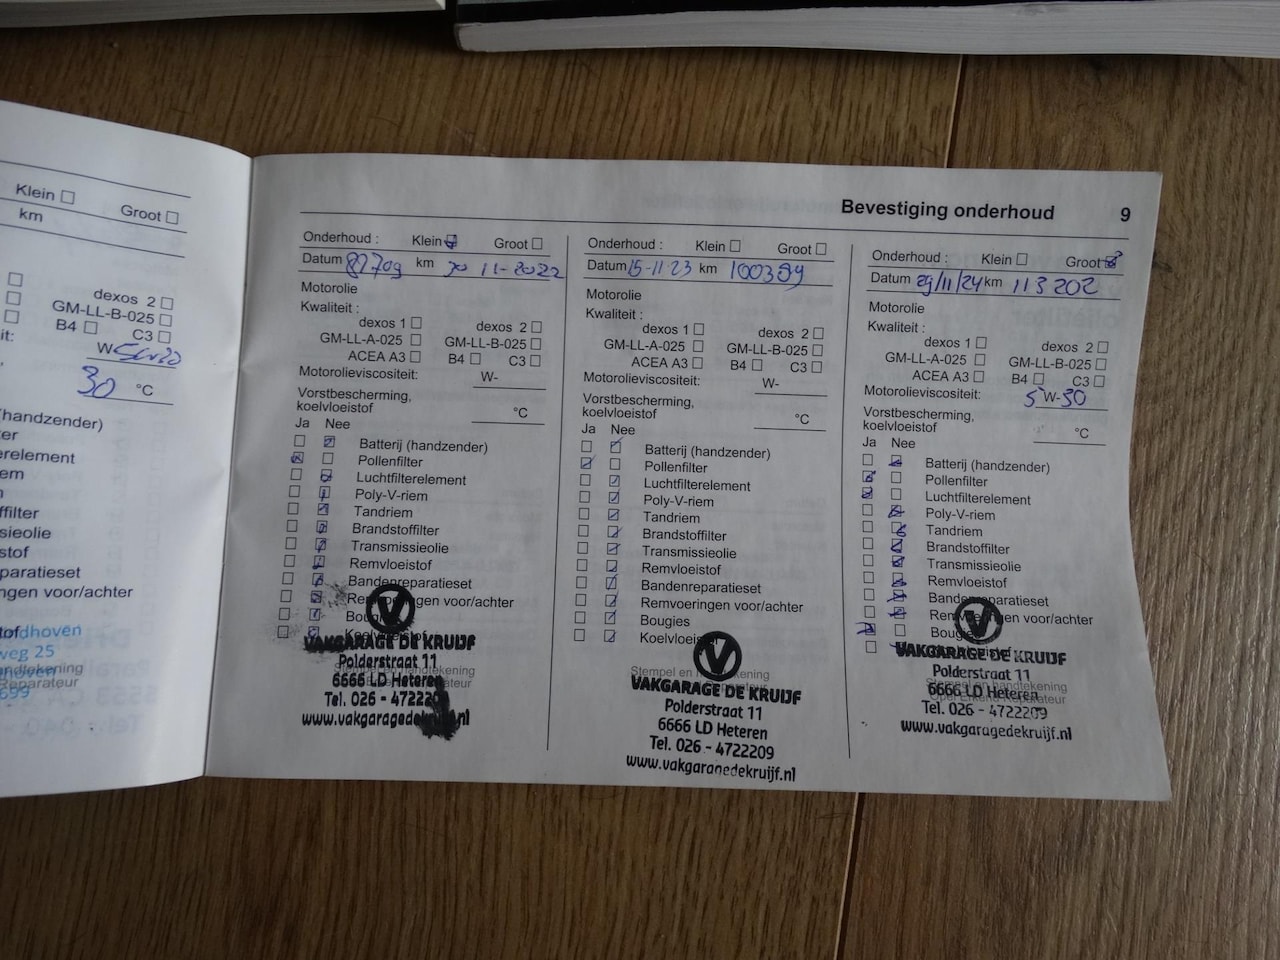 Klein Groot
km
dexos 2
GM-LL-B-025
B4 C3
W
30 °C
(handzender)
Bevestiging onderhoud 9
Onderhoud : Klein Groot
Datum 82709 km 30 11-2022
Motorolie
Kwaliteit :
dexos 1 dexos 2
GM-LL-A-025 GM-LL-B-025
ACEA A3 B4 C3
Motorolieviscositeit: W-
Vorstbescherming,
koelvloeistof °C
Ja Nee
Batterij (handzender)
Pollenfilter
Luchtfilterelement
Poly-V-riem
Tandriem
Brandstoffilter
Transmissieolie
Remvloeistof
Bandenreparatieset
Remvoeringen voor/achter
Bougies
Koelvloeistof
Stempel en handtekening
VAKGARAGE DE KRUIJF
Polderstraat 11
6666 LD Heteren
Tel. 026 - 4722209
www.vakgaragedekruijf.nl
Onderhoud : Klein Groot
Datum 15-11-23 km 100399
Motorolie
Kwaliteit :
dexos 1 dexos 2
GM-LL-A-025 GM-LL-B-025
ACEA A3 B4 C3
Motorolieviscositeit: W-
Vorstbescherming,
koelvloeistof °C
Ja Nee
Batterij (handzender)
Pollenfilter
Luchtfilterelement
Poly-V-riem
Tandriem
Brandstoffilter
Transmissieolie
Remvloeistof
Bandenreparatieset
Remvoeringen voor/achter
Bougies
Koelvloeistof
Stempel en handtekening
VAKGARAGE DE KRUIJF
Polderstraat 11
6666 LD Heteren
Tel. 026 - 4722209
www.vakgaragedekruijf.nl
Onderhoud : Klein Groot
Datum 29/11/24 km 113202
Motorolie
Kwaliteit :
dexos 1 dexos 2
GM-LL-A-025 GM-LL-B-025
ACEA A3 B4 C3
Motorolieviscositeit: 5 W-30
Vorstbescherming,
koelvloeistof °C
Ja Nee
Batterij (handzender)
Pollenfilter
Luchtfilterelement
Poly-V-riem
Tandriem
Brandstoffilter
Transmissieolie
Remvloeistof
Bandenreparatieset
Remvoeringen voor/achter
Bougies
VAKGARAGE DE KRUIJF
Polderstraat 11
Stempel en handtekening
6666 LD Heteren
Opel Erkend Reparateur
Tel. 026 - 4722209
www.vakgaragedekruijf.nl